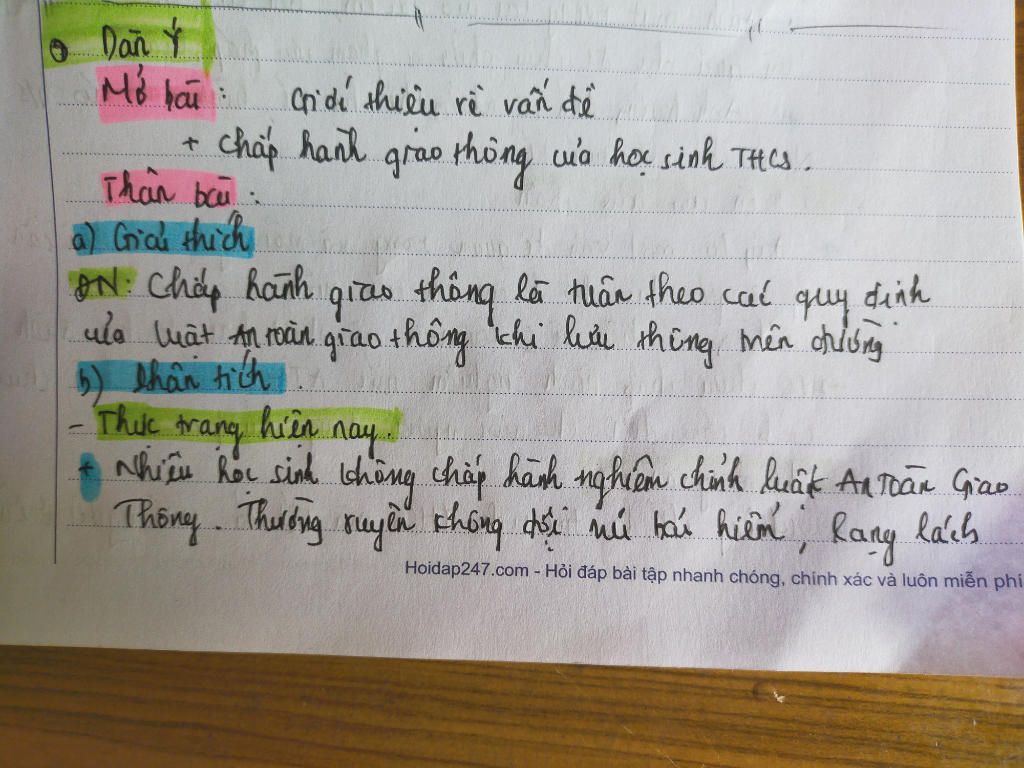 Dàn Ý
Mở bài: Giới thiệu về vấn đề
+ Chấp hành giao thông của học sinh THCS.
Thân bài:
a) Giải thích
ĐN: Chấp hành giao thông là tuân theo các quy định
của luật An toàn giao thông khi lưu thông trên đường
b) Phân tích.
- Thực trạng hiện nay.
+ Nhiều học sinh không chấp hành nghiêm chỉnh luật An Toàn Giao
Thông. Thường xuyên không đội mũ bảo hiểm, lạng lách
Hoidap247.com - Hỏi đáp bài tập nhanh chóng, chính xác và luôn miễn phí